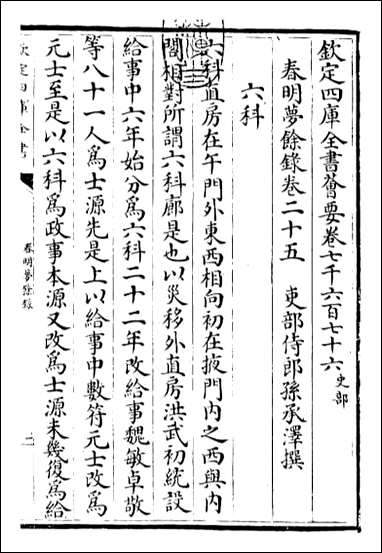 欽定四庫全書薈要卷七千六百七十六 史部
春明夢餘錄卷二十五 吏部侍郎孫承澤撰
六科
六科直房在午門外東西相向初在掖門内之西與内
閣相對所謂六科廊是也以災移外直房洪武初統設
給事中六年始分為六科二十二年改給事魏敏卓敬
等八十一人為士源先是上以給事中數符元士改為
元士至是以六科為政事本源又改為士源未幾復為給
欽定四庫全書
春明夢餘錄